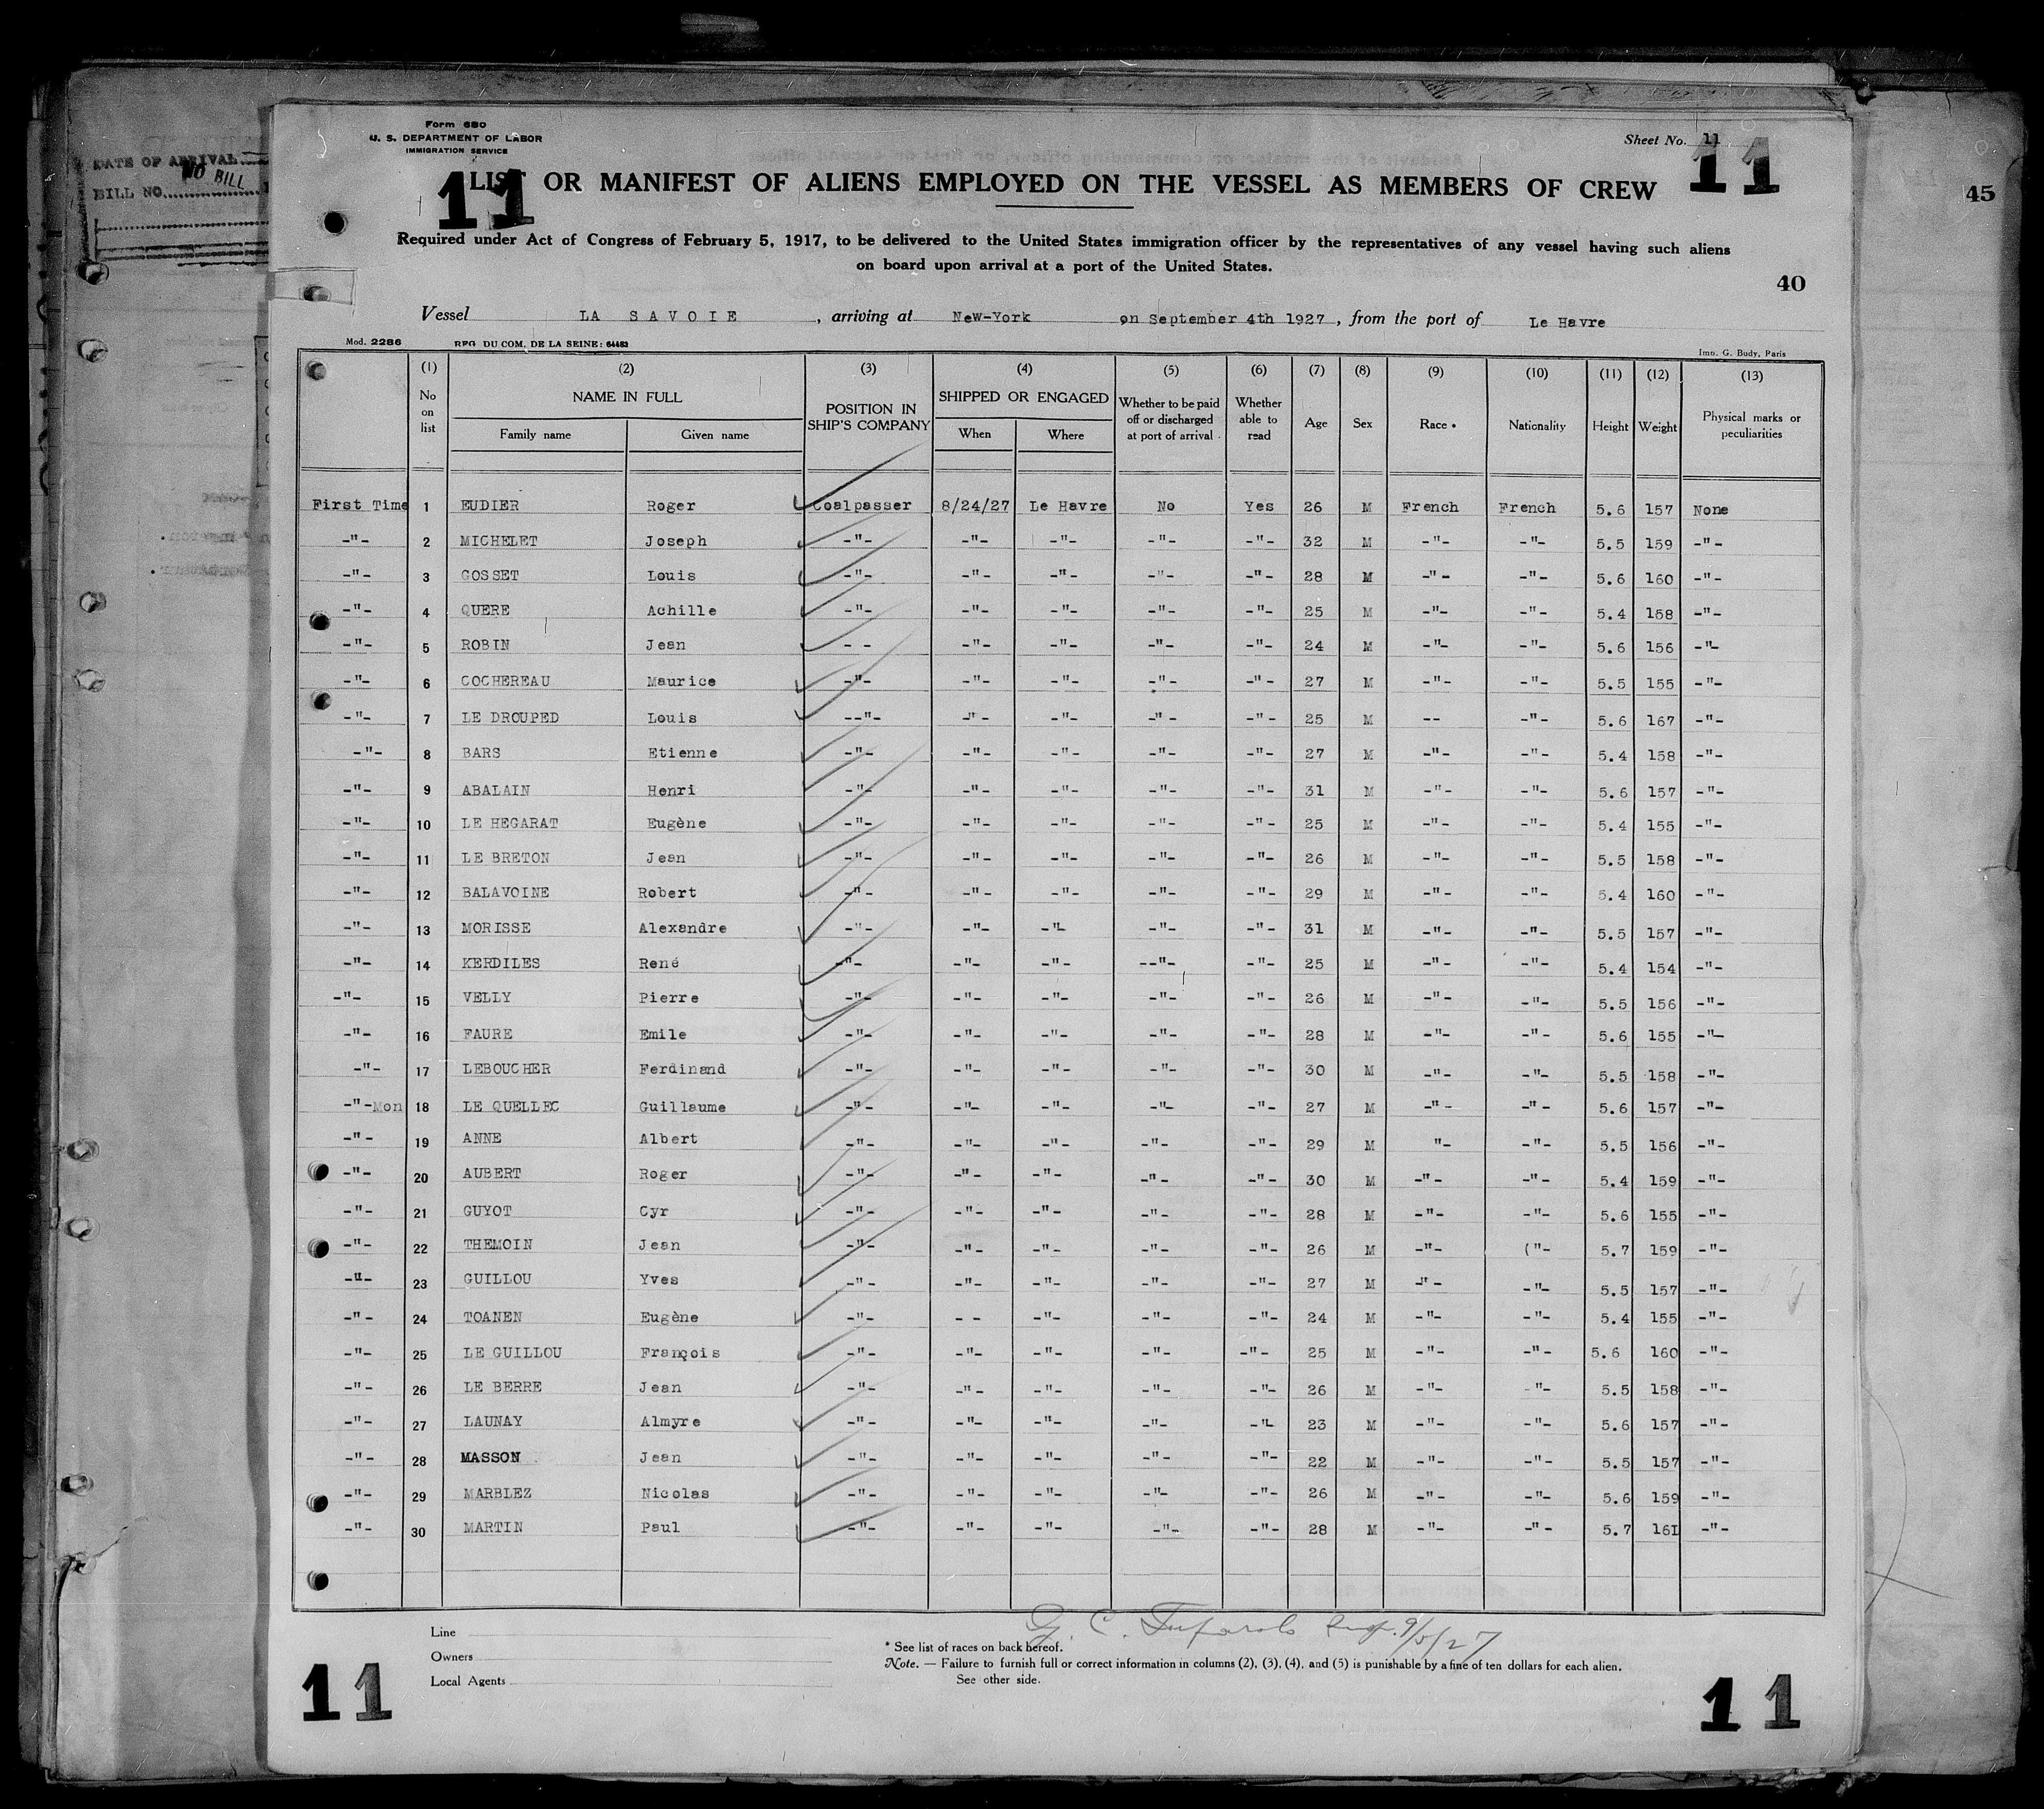 DATE OF ARRIVAL
NO BILL
BILL NO.
Form 680
U. S. DEPARTMENT OF LABOR
IMMIGRATION SERVICE
Sheet No. 11
11
11
LIST OR MANIFEST OF ALIENS EMPLOYED ON THE VESSEL AS MEMBERS OF CREW
45
Required under Act of Congress of February 5, 1917, to be delivered to the United States immigration officer by the representatives of any vessel having such aliens
on board upon arrival at a port of the United States.
40
Vessel LA SAVOIE, arriving at New-York on September 4th 1927, from the port of Le Havre
Mod. 2286 REG DU COM. DE LA SEINE: 64463 Imp. G. Budy, Paris
(1) (2) (3) (4) (5) (6) (7) (8) (9) (10) (11) (12) (13)
No on list NAME IN FULL Family name Given name POSITION IN SHIP'S COMPANY SHIPPED OR ENGAGED When Where Whether to be paid off or discharged at port of arrival Whether able to read Age Sex Race * Nationality Height Weight Physical marks or peculiarities
First Time 1 EUDIER Roger Coalpasser 8/24/27 Le Havre No Yes 26 M French French 5.6 157 None
-"- 2 MICHELET Joseph -"- -"- -"- -"- -"- 32 M -"- -"- 5.5 159 -"-
-"- 3 GOSSET Louis -"- -"- -"- -"- -"- 28 M -"- -"- 5.6 160 -"-
-"- 4 QUERE Achille -"- -"- -"- -"- -"- 25 M -"- -"- 5.4 158 -"-
-"- 5 ROBIN Jean - - -"- -"- -"- -"- 24 M -"- -"- 5.6 156 -"-
-"- 6 COCHEREAU Maurice -"- -"- -"- -"- -"- 27 M -"- -"- 5.5 155 -"-
-"- 7 LE DROUPED Louis --"- -"- -"- -"- -"- 25 M -- -"- 5.6 167 -"-
-"- 8 BARS Etienne -"- -"- -"- -"- -"- 27 M -"- -"- 5.4 158 -"-
-"- 9 ABALAIN Henri -"- -"- -"- -"- -"- 31 M -"- -"- 5.6 157 -"-
-"- 10 LE HEGARAT Eugène -"- -"- -"- -"- -"- 25 M -"- -"- 5.4 155 -"-
-"- 11 LE BRETON Jean -"- -"- -"- -"- -"- 26 M -"- -"- 5.5 158 -"-
-"- 12 BALAVOINE Robert -"- -"- -"- -"- -"- 29 M -"- -"- 5.4 160 -"-
-"- 13 MORISSE Alexandre -"- -"- -"- -"- -"- 31 M -"- -"- 5.5 157 -"-
-"- 14 KERDILES René -"- -"- -"- --"- -"- 25 M -"- -"- 5.4 154 -"-
-"- 15 VELLY Pierre -"- -"- -"- -"- -"- 26 M -"- -"- 5.5 156 -"-
-"- 16 FAURE Emile -"- -"- -"- -"- -"- 28 M -"- -"- 5.6 155 -"-
-"- 17 LEBOUCHER Ferdinand -"- -"- -"- -"- -"- 30 M -"- -"- 5.5 158 -"-
-"-Mon 18 LE QUELLEC Guillaume -"- -"- -"- -"- -"- 27 M -"- -"- 5.6 157 -"-
-"- 19 ANNE Albert -"- -"- -"- -"- -"- 29 M "- -"- 5.5 156 -"-
-"- 20 AUBERT Roger -"- -"- -"- -"- -"- 30 M -"- -"- 5.4 159 -"-
-"- 21 GUYOT Cyr -"- -"- -"- -"- -"- 28 M -"- -"- 5.6 155 -"-
-"- 22 THEMOIN Jean -"- -"- -"- -"- -"- 26 M -"- ("- 5.7 159 -"-
-"- 23 GUILLOU Yves -"- -"- -"- -"- -"- 27 M -"- -"- 5.5 157 -"-
-"- 24 TOANEN Eugène -"- - - -"- -"- -"- 24 M -"- -"- 5.4 155 -"-
-"- 25 LE GUILLOU François -"- -"- -"- -"- -"- 25 M -"- -"- 5.6 160 -"-
-"- 26 LE BERRE Jean -"- -"- -"- -"- -"- 26 M -"- -"- 5.5 158 -"-
-"- 27 LAUNAY Almyre -"- -"- -"- -"- -"- 23 M -"- -"- 5.6 157 -"-
-"- 28 MASSON Jean -"- -"- -"- -"- -"- 22 M -"- -"- 5.5 157 -"-
-"- 29 MARBLEZ Nicolas -"- -"- -"- -"- -"- 26 M -"- -"- 5.6 159 -"-
-"- 30 MARTIN Paul -"- -"- -"- -"- -"- 28 M -"- -"- 5.7 161 -"-
G. C. Insp. 9/5/27
Line
* See list of races on back hereof.
Owners
Note. — Failure to furnish full or correct information in columns (2), (3), (4), and (5) is punishable by a fine of ten dollars for each alien.
Local Agents
See other side.
11
11